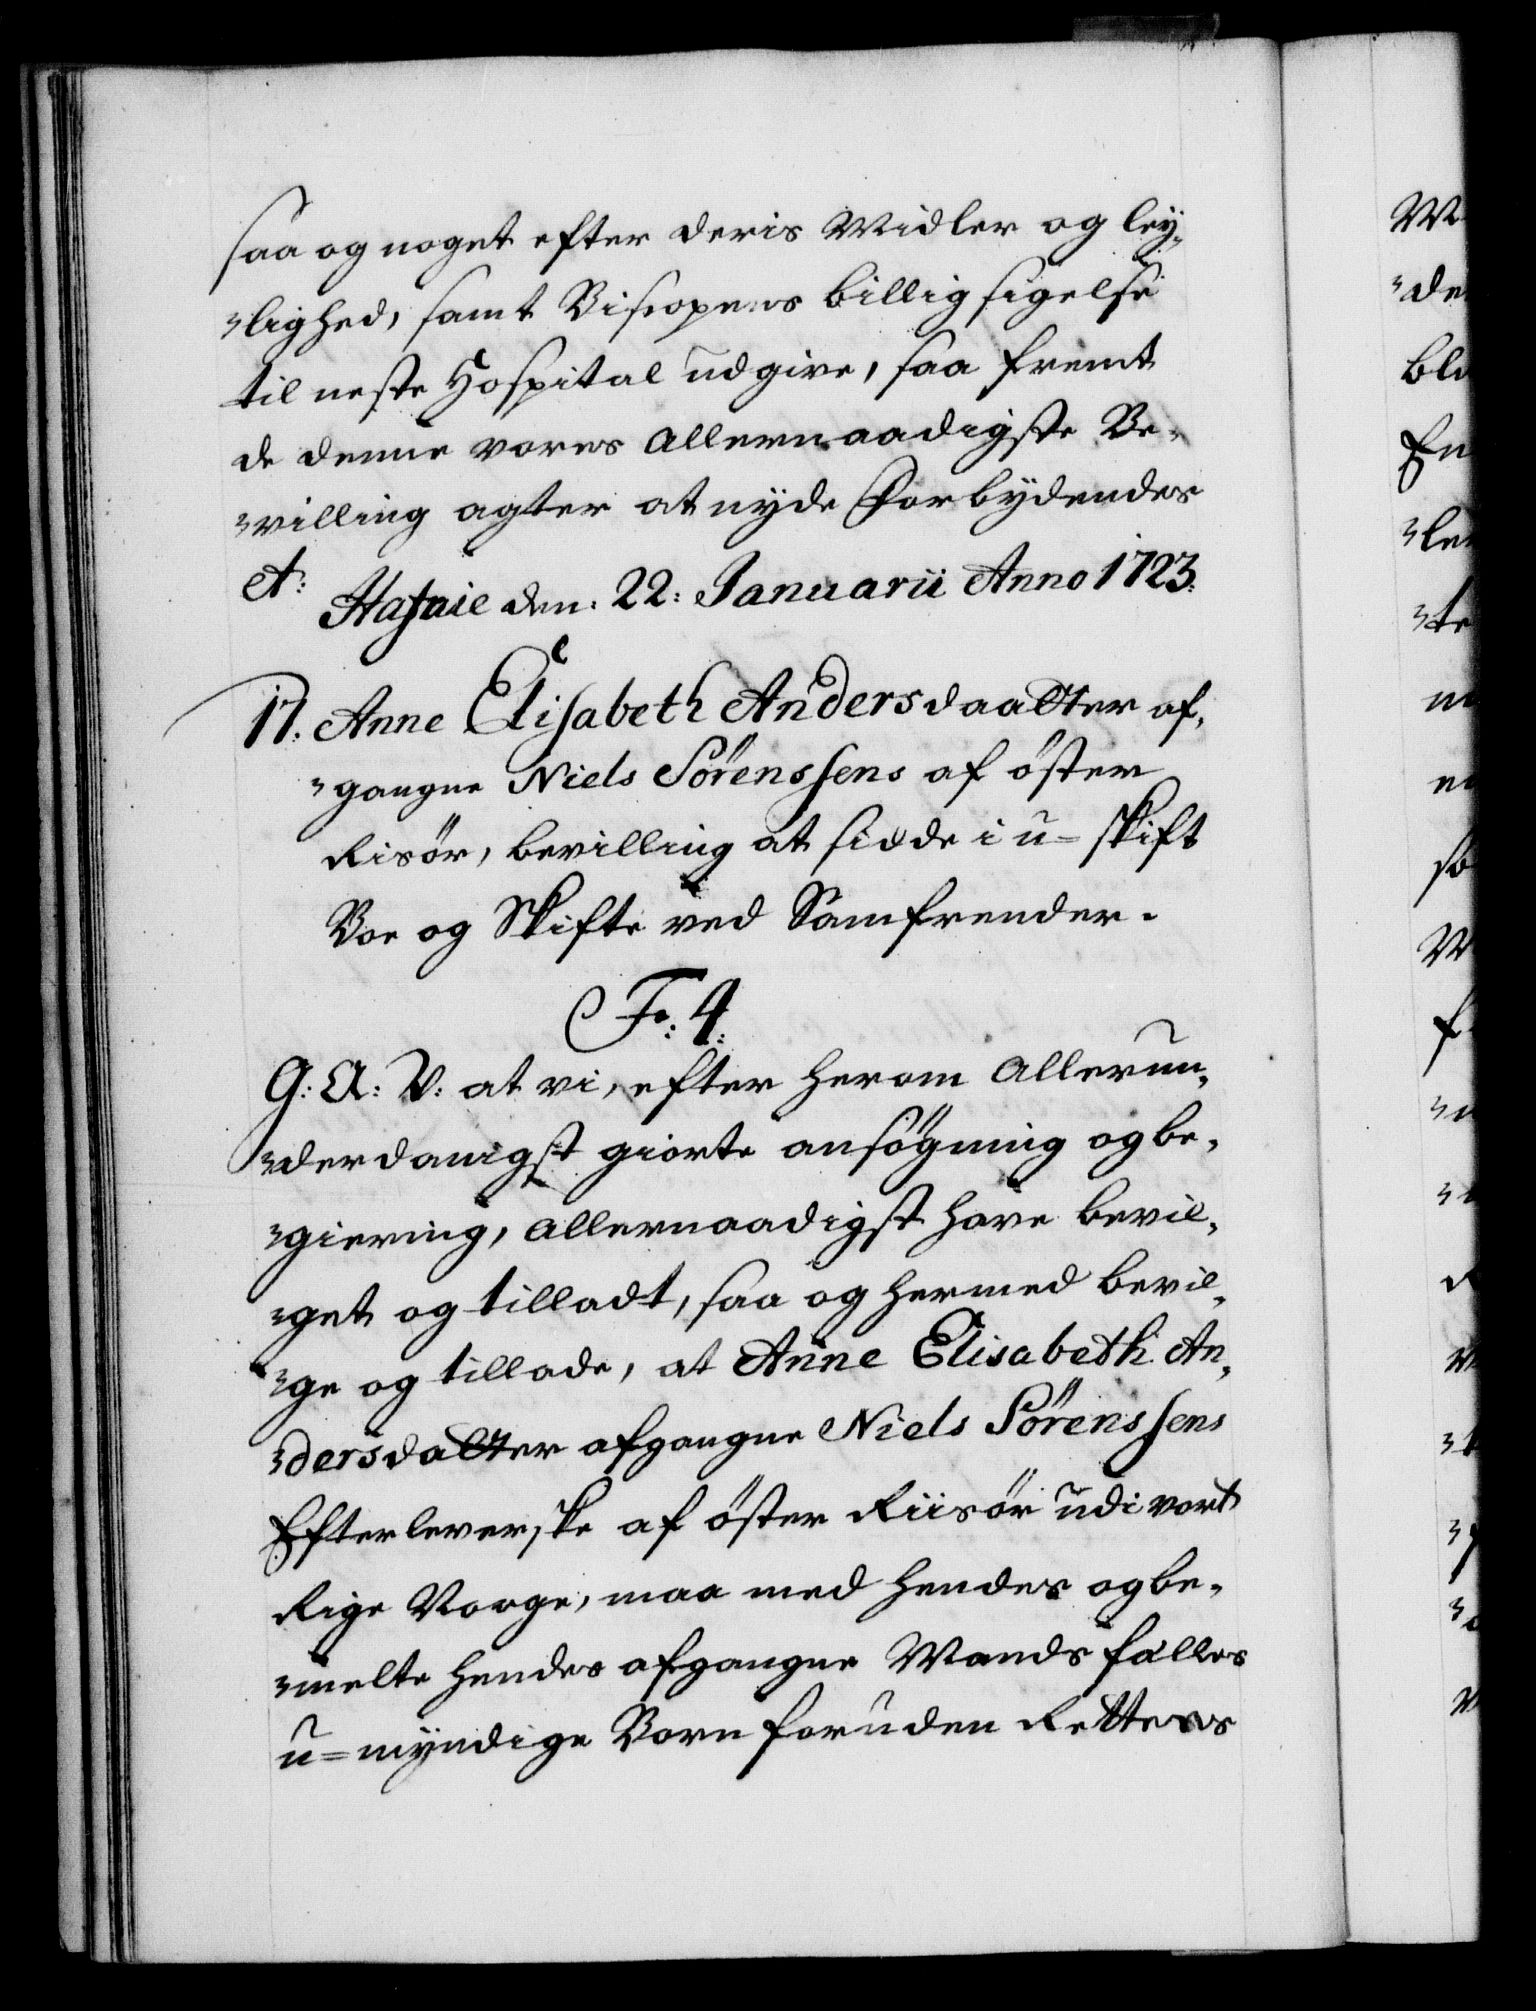 saa og noget efter deris Midler og ley¬
"lighed, samt Biscopens billig sigelse
til neste Hospital udgive, saa fremt
de denne vores allernaadigste Be¬
"villing agter at nyde Forbydendes
etc: Hafniæ den: 22: Januarii Anno 1723.
17. Anne Elisabeth Andersdaatter af¬
"gangne Niels Sörenssens af öster
Risör, bevilling at sidde i u=skift
Boe og Skifte ved Samfrender.
Fr: 4:
G: A: V: at vi, efter herom allerun¬
"derdanigst giorte ansögning og be¬
"giering, allernaadigst have bevil¬
"get og tilladt, saa og hermed bevil¬
"ge og tillade, at Anne Elisabeth An¬
"dersdatter afgangne Niels Sörenssens
Efterleverske af öster Riisör udi vort
Rige Norge, maa med hendes og be¬
"melte hendes afgangne Mands fælles
u=myndige Börn foruden Rettens